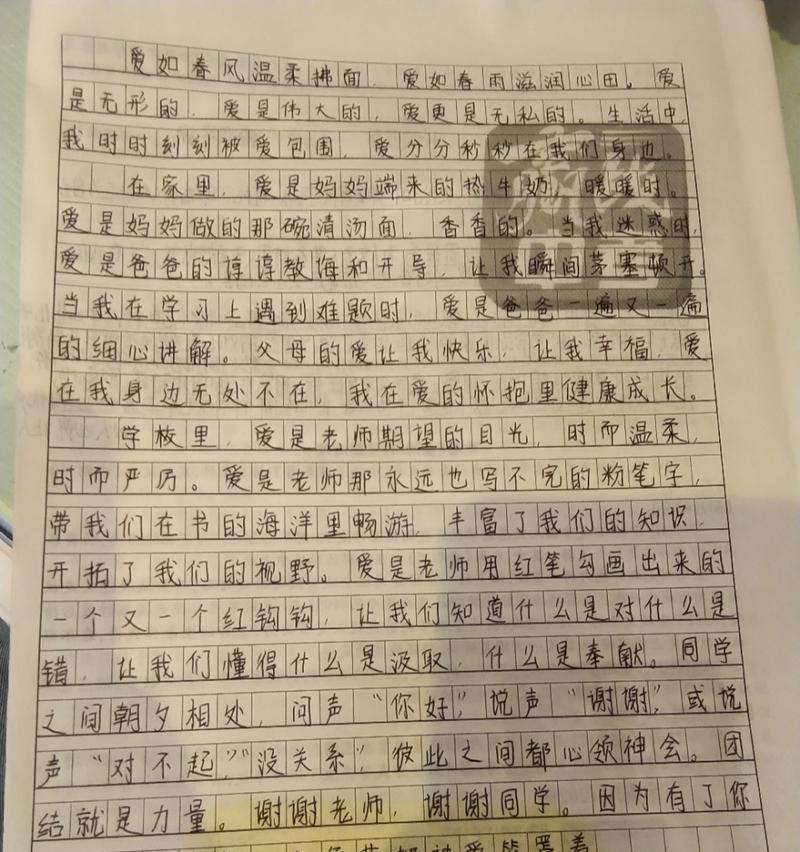 爱如春风温柔拂面，爱如春雨滋润心田。爱
是无形的，爱是伟大的，爱更是无私的。生活中，
我时时刻刻被爱包围，爱分分秒秒在我们身边。
在家里，爱是妈妈端来的热牛奶，暖暖时。
爱是妈妈做的那碗清汤面，香香的。当我迷惑时，
爱是爸爸的谆谆教诲和开导，让我瞬间茅塞顿开。
当我在学习上遇到难题时，爱是爸爸一遍又一遍
的细心讲解。父母的爱让我快乐，让我幸福，爱
在我身边无处不在，我在爱的怀抱里健康成长。
学校里，爱是老师期望的目光，时而温柔，
时而严厉。爱是老师那永远也写不完的粉笔字，
带我们在书的海洋里畅游，丰富了我们的知识，
开拓了我们的视野。爱是老师用红笔勾画出来的
一个又一个红钩钩，让我们知道什么是对什么是
错，让我们懂得什么是汲取，什么是奉献。同学
之间朝夕相处，问声“你好”，说声“谢谢”，或说
声“对不起”“没关系”，彼此之间都心领神会。团
结就是力量。谢谢老师，谢谢同学。因为有了你
被爱笼罩着